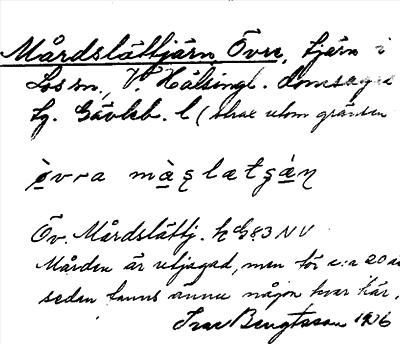 Mårdslåttjärn, Övre, tjärn i
Los sn., V. Hälsingl. domsaga
tg. Gävleb. l (strax utom gränsen
òvra màşlætşàṇ
Öv. Mårdslåttj. k G83 NV
Mården är utjagad, men för c:a 20 år
seden fanns ännu någon kvar här,
Ivar Bengtsson 1906